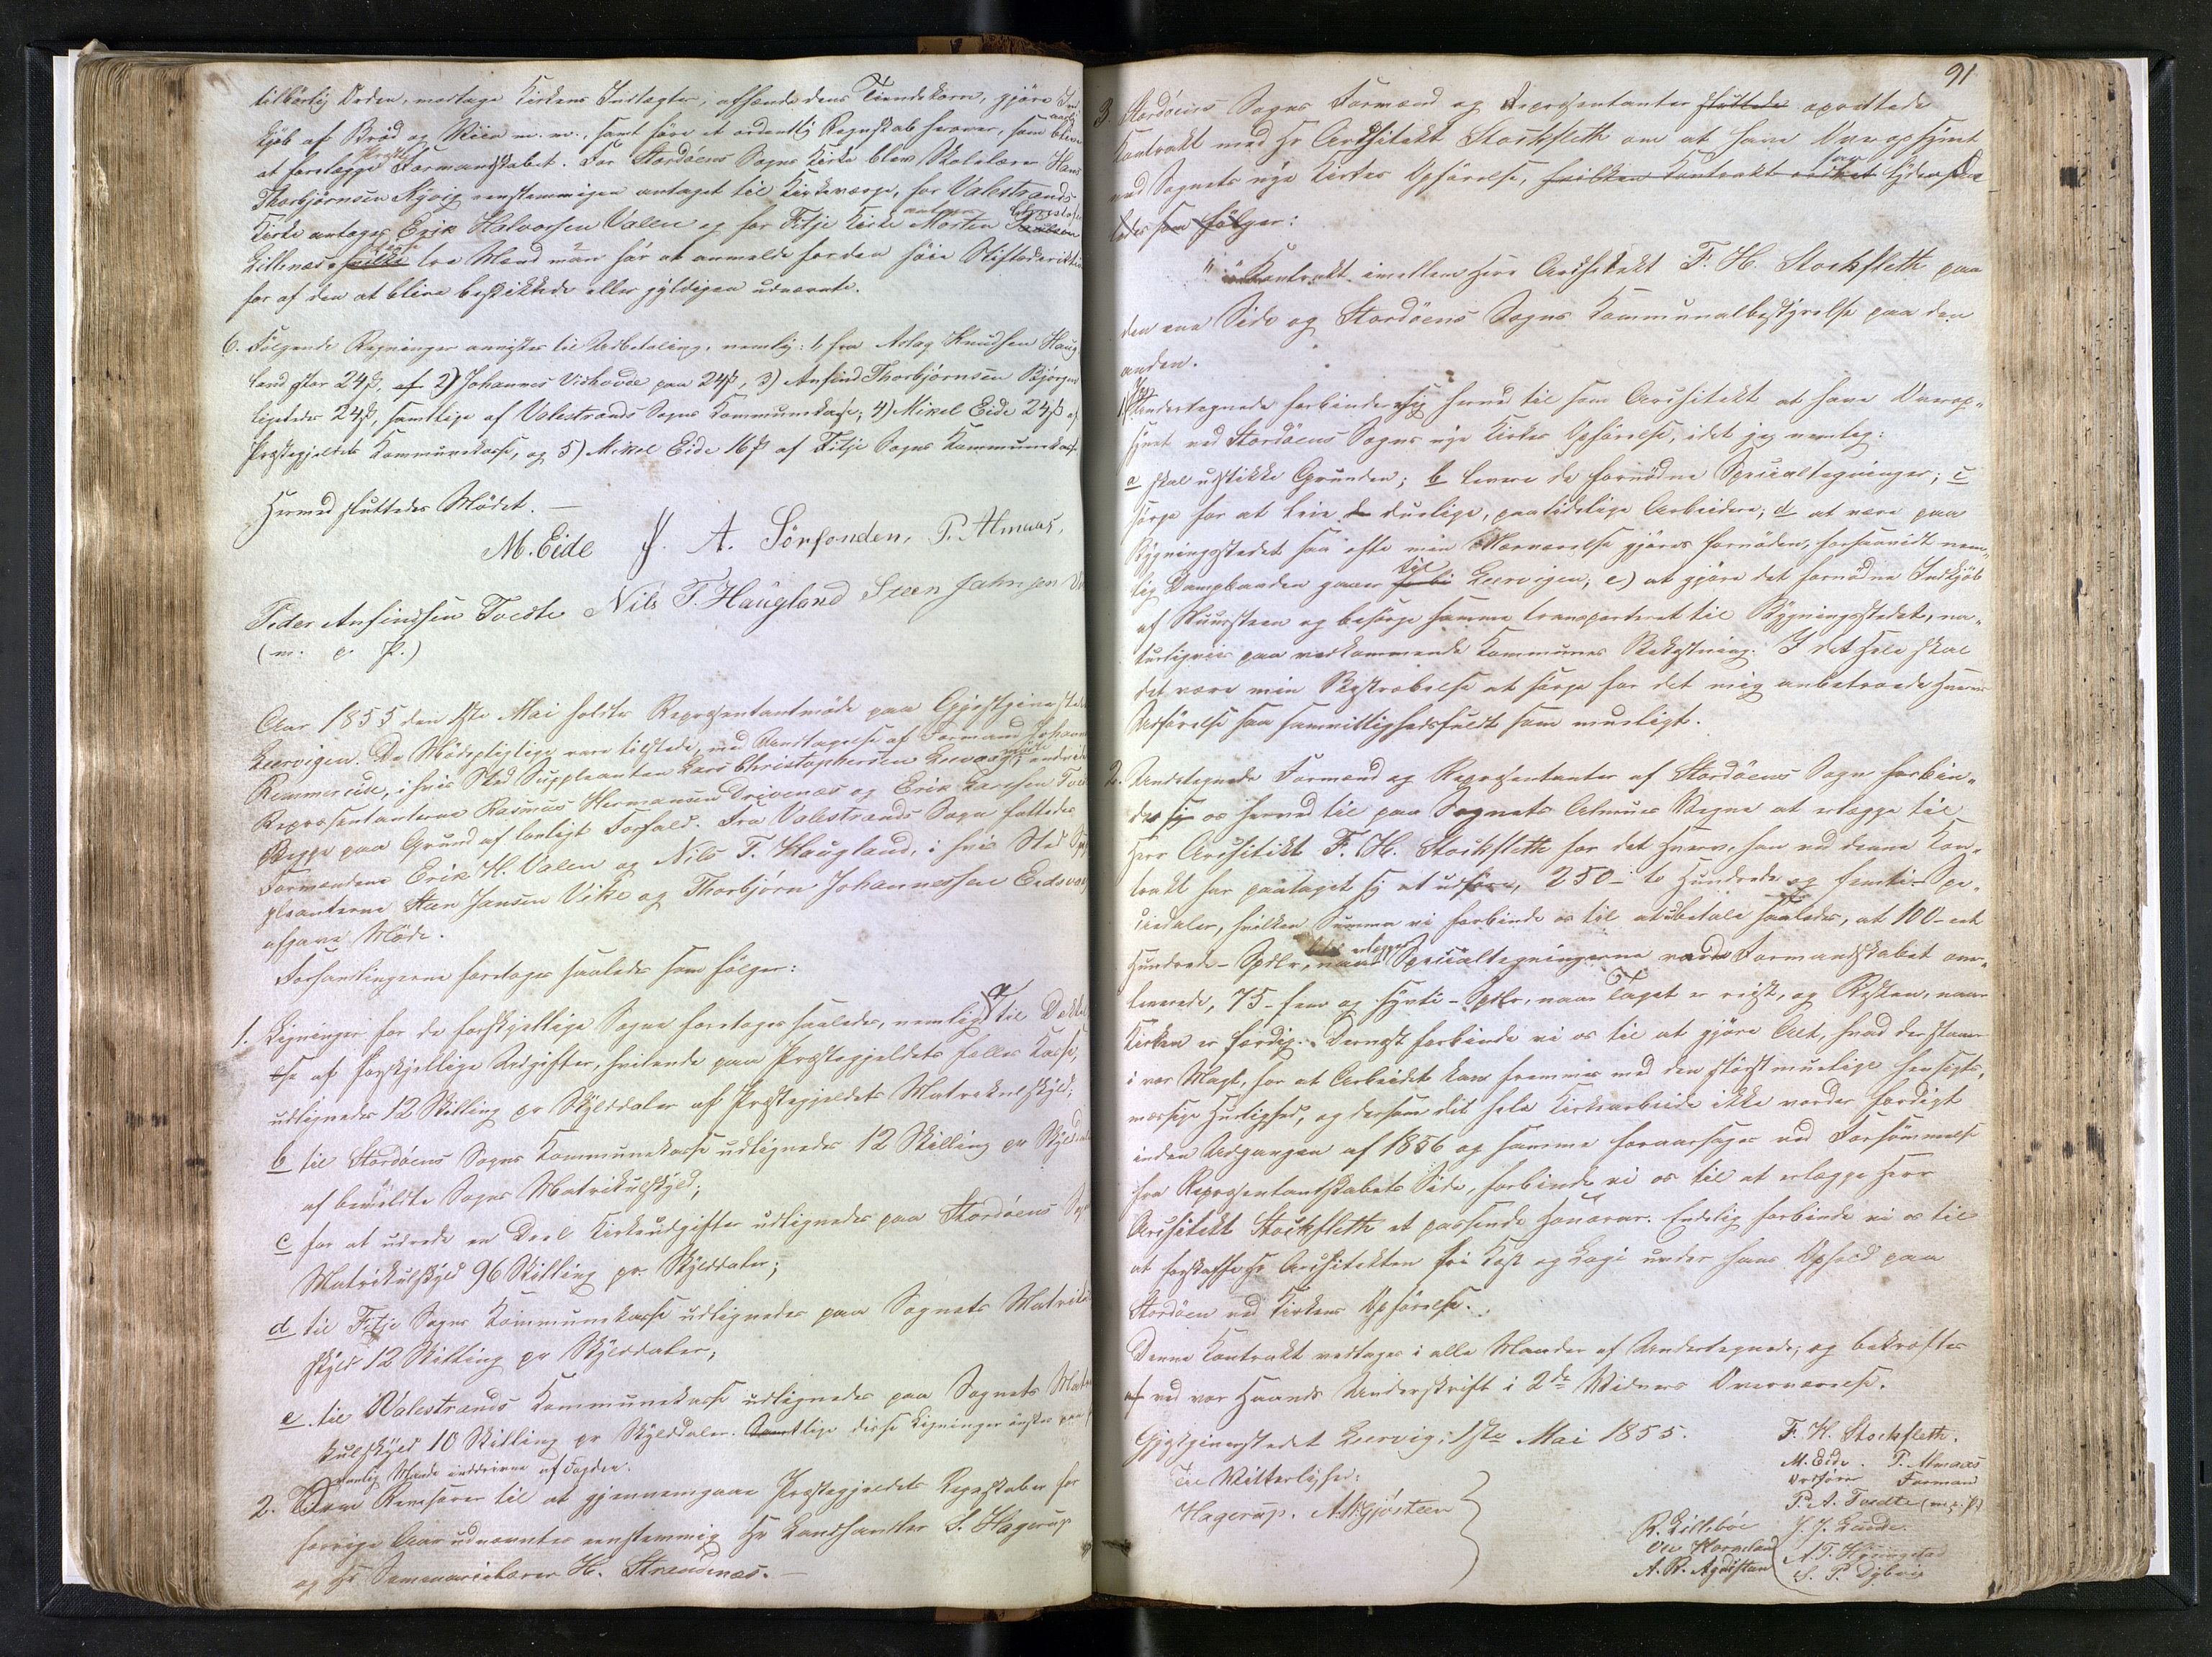 tilbørlig Orden, modtage Kirkens Indtægter, afhænde dens Tiendekorn, gjøre Ind-
kjøb af Brød og Viin m. m., samt føre et ordentlig Regnskab herover, som bliver
at forelægge Formandskabet. For Stordøens Sogns Kirke blev Skolelærer Hans
Thorbjørnsen Nysvig eenstemmigen antaget til Kirkeværge, for Valestrands
Kirke antages Erik Halvorsen Valen og for Fitje Kirke Morten
Lillenæs, hvilke tre Mænd man har at anmelde for den høie Stiftsdirektion
for af den at blive beskikkede eller gyldigen udnævnte.
6. Følgende Regninger anvistes til Udbetaling, nemlig: 1, fra Aslag Knudsen Haug-
land stor 24 ß, af 2) Johannes Vishovde paa 24 ß, 3) Anfind Thorbjørnsen Bjørgen
ligeledes 24 ß, samtlige af Valestrands Sogns Kommunekasse; 4) Mikel Eide 24 ß af
Præstegjeldets Kommunekasse, og 5) Mikel Eide 16 ß af Fitje Sogns Kommunekasse
Hermed sluttedes Mødet. —
M. Eide J. A. Sørfonden, P. Almaas,
Peder Anfindsen Tvedte Nils T. Haugland Steen Jahnsen
(m. p. P.)
Aar 1855 den 1ste Mai holdtes Repræsentantmøde paa Gjæstgiverstedet
Leervigen. De Mødepligtige vare tilstede, med Undtagelse af Formand Johannes
Remmereide, i hvis Sted Suppleanten Lars Christophersen Leervaag mødte,
Repræsentanterne Rasmus Hermansen Drivenæs og Erik Larsen
Begge paa Grund af lovligt Forfald. Fra Valestrands Sogn fattedes
Formændene Erik H. Valen og Nils T. Haugland, i hvis Sted Sup-
pleanterne Steen Jansen Vike og Thorbjørn Johannessen Eidsvaag
afgave Møde.
Forhandlingerne foretoges saaledes som følger:
1. Ligninger for de forskjellige Sogne foretoges saaledes, nemlig a til Dækkel-
se af forskjellige Udgifter, hvilende paa Præstegjeldets fælles Kasse,
udlignedes 12 Skilling pr Skylddaler af Præstegjeldets Matrikulskyld;
b til Stordøens Sogns Kommunekasse udlignedes 12 Skilling pr Skylddaler
af bemeldte Sogns Matrikulskyld;
c for at udrede en Deel Kirkeudgifter udlignedes paa Stordøens Sogns
Matrikulskyld 96 Skilling pr. Skylddaler;
d til Fitje Sogns Kommunekasse udlignedes paa Sognets Matrikul-
skyld 12 Skilling pr Skylddaler;
e. til Valestrands Kommunekasse udlignedes paa Sognets Matri-
kulskyld 10 Skilling pr Skylddaler. Samtlige disse Ligninger ønskes paa
vanlig Maade inddrevne af Fogden.
2. Som Revisorer til at gjennemgaae Præstegjeldets Regnskaber for
forrige Aar udnævntes eenstemmig Hr Landhandler S. Hagerup
og Hr Seminarielærer H. Strandenæs. —
91
3. Stordøens Sogns Formænd og Repræsentanter sluttede oprettede
Kontrakt med Hr Architekt Stockfleth om at have Overopsynet
ved Sognets nye Kirkes Opførelse, hvilken Kontrakt lyder saa-
ledes som følger:
"Kontrakt imellem Herr Architekt F. H. Stockfleth paa
den ene Side og Stordøens Sogns Kommunalbestyrelse paa den
anden.
1, Undertegnede forbinder sig herved til som Architekt at have Overop-
synet ved Stordøens Sogns nye Kirkes Opførelse, idet jeg nemlig:
a skal udstikke Grunden; b levere de fornødne Specialtegninger; c
sørge for at leie duelige, paalidelige Arbeidere; d at være paa
Bygningsstedet saa ofte min Nærværelse gjøres fornøden, forsaavidt nem-
lig Dampbaaden gaaer til Leervigen; e) at gjøre det fornødne Indkjøb
af Muursteen og besørge samme transporteret til Bygningsstedet, na-
turligviis paa vedkommende Kommunes Bekostning. I det Hele skal
det være min Bestræbelse at sørge for det mig anbetroede Hvervs
Udførelse saa samvittighedsfuldt som mueligt.
2. Undertegnede Formænd og Repræsentanter af Stordøens Sogn forbin-
der sig os herved til paa Sognets Almues Vegne at erlægge til
Herr Architekt F. H. Stockfleth for det Hverv, han ved denne Kon-
trakt har paataget sig at udføre, 250 – to Hundrede og femti – Spe-
ciedaler, hvilken Summa vi forbinde os til at udbetale saaledes, at 100 – eet
Hundrede – Spdlr, naar Specialtegningerne vorde Formandskabet over-
leverede, 75 – fem og sytti – Spdlr, naar Taget er reist, og Resten, naar
Kirken er færdig. Dernæst forbinde vi os til at gjøre Alt, hvad der staaer
i vor Magt, for at Arbeidet kan fremmes med den størst muelige hensigts-
mæssige Hurtighed, og dersom det hele Kirkearbeide ikke vorder færdigt
inden Udgangen af 1856 og samme foraarsages ved Forsømmelse
fra Repræsentantskabets Side, forbinde vi os til at erlægge Herr
Architekt Stockfleth et passende Honorar. Endelig forbinde vi os til
at forskaffe Hr Architekten fri Kost og Logi under hans Ophold paa
Stordøen ved Kirkens Opførelse.
Denne Kontrakt vedtages i alle Maader af Undertegnede, og bekræftes
af ved vor Haands Underskrift i 2de Vidners Overværelse.
Gjæstgiverstedet Leervig, 1ste Mai 1855.
F. H. Stockfleth.
Til Vitterlighed:
M. Eide. P. Almaas
Ordfører Formand
Hagerup. A. M. Gjøsteen
P. A. Tvedte (m. p. P.)
R. Lillebøe J. J. Leede.
Ole Horneland A. T. Hyningstad
A. R. Agdesteen S. P. Dybvig